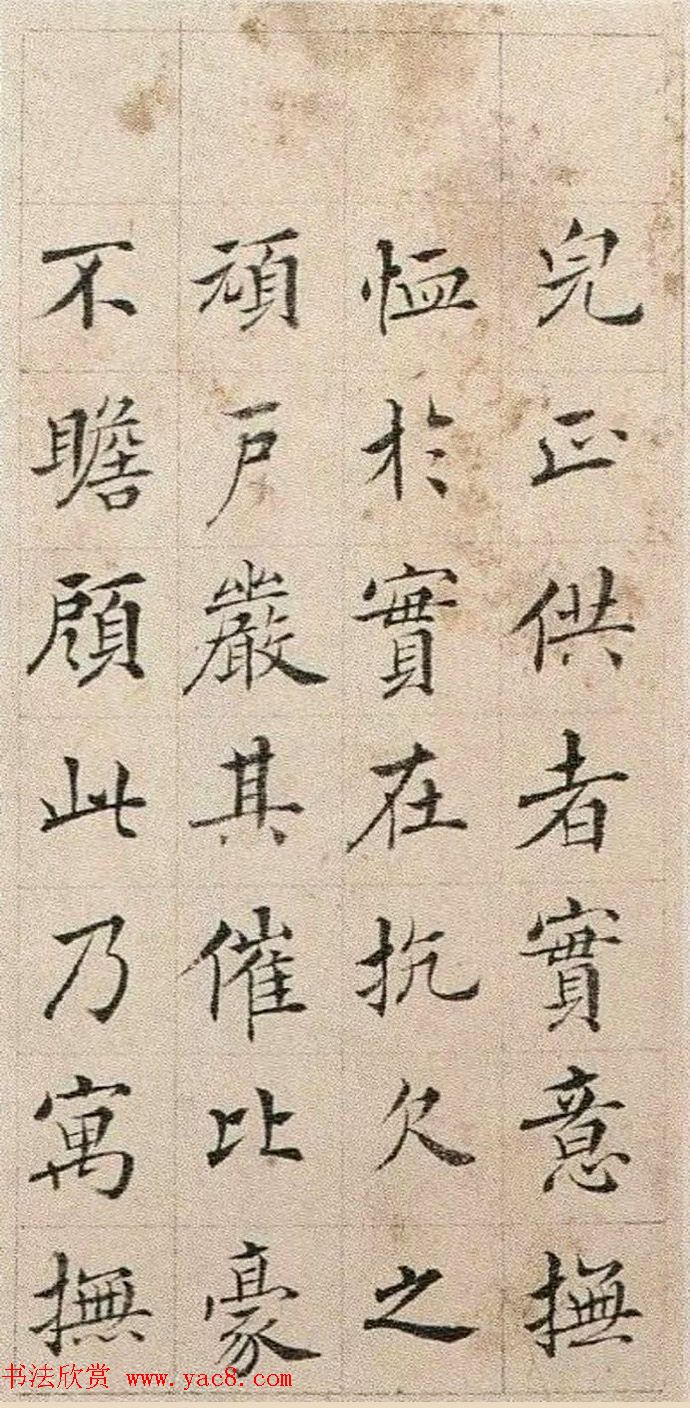 皃正供者實意撫
恤於實在抗欠之
頑戶嚴其催比豪
不瞻顧此乃寓撫
书法欣赏 www.yac8.com